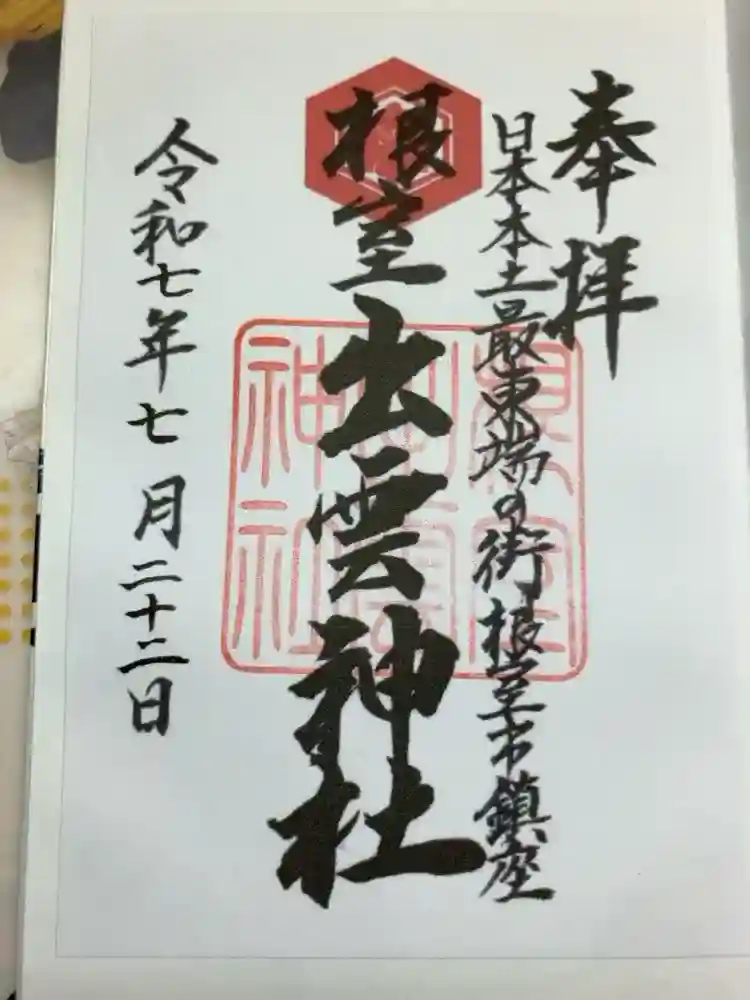 奉拝
日本本土最東端の街根室市鎮座
根室出雲神社
令和七年七月二十二日
根室
出雲
神社